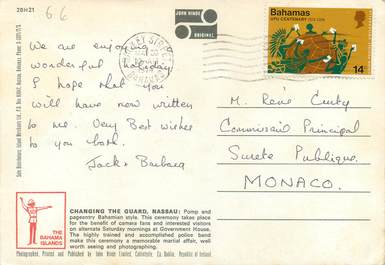 66
20H21
We are enjoying
wonderful holiday
I hope that you
will have now written
to me. Very Best wishes
to you both.
Jack & Barbara
Bahamas
UPU CENTENARY 1874-1974
14c
M. René
Commissaire Principal
Surete Publique
MONACO.
THE
BAHAMA
ISLANDS
CHANGING THE GUARD, NASSAU: Pomp and
pageantry Bahamian style. This ceremony takes place
for the benefit of camera fans and interested visitors
on alternate Saturday mornings at Government House.
The highly trained and accomplished police band
make this ceremony a memorable martial affair, well
worth seeing and photographing.
Photographed, Printed and Published by John Hinde Limited, Cabinteely, Co. Dublin, Republic of Ireland.